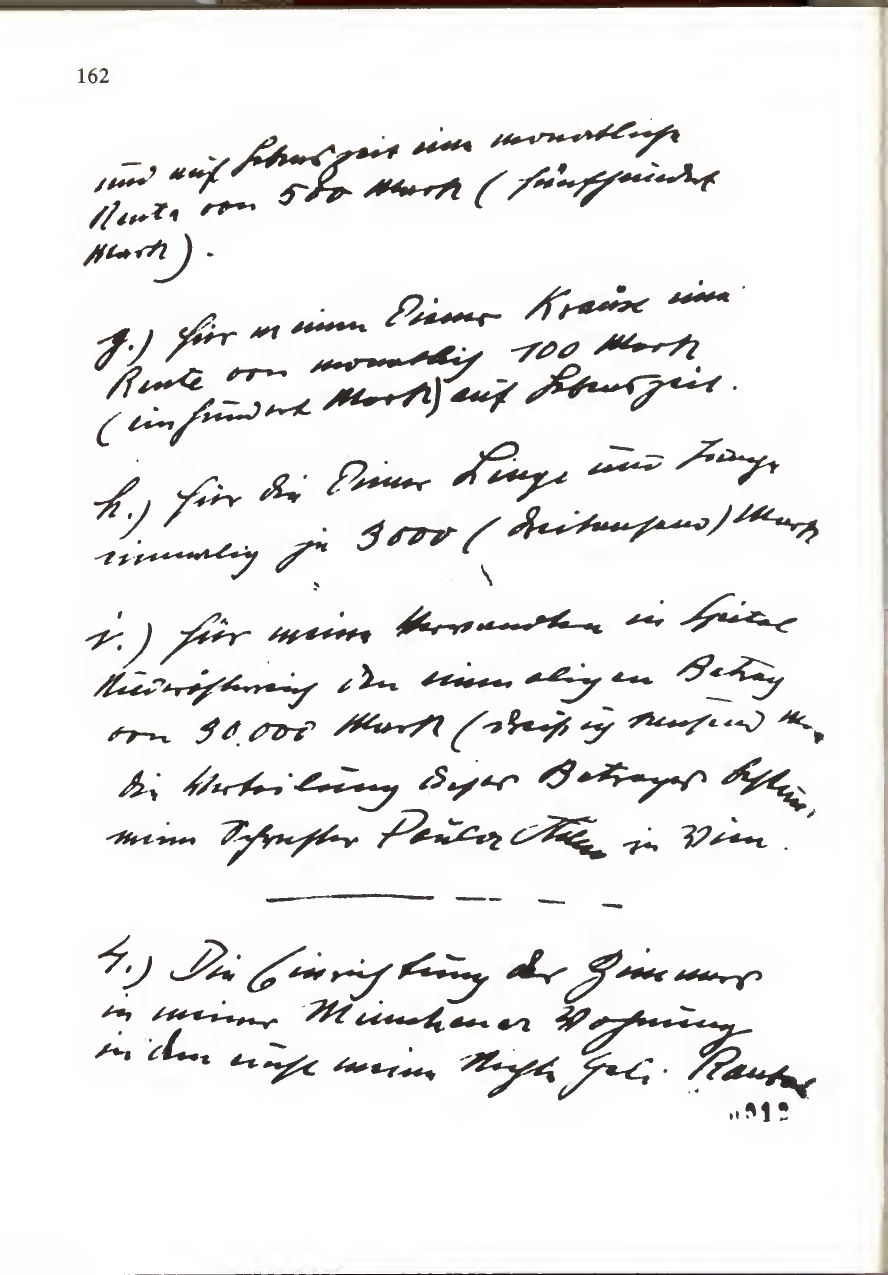 162
und auf Lebenszeit eine monatliche
Rente von 500 Mark ( fünfhundert
Mark ) .
g.) für meinen Diener Krause eine
Rente von monatlich 100 Mark
( einhundert Mark) auf Lebenszeit .
h.) für die Diener Linge und Junge
einmalig je 3000 ( dreitausend) Mark
i.) für meine Verwandten in Spital
Niederösterreich den einmaligen Betrag
von 30.000 Mark ( dreißig tausend
die Verteilung dieses Betrages bestimmt
meine Schwester Paula in Wien .
4.) Die Einrichtung des Zimmers
in meiner Münchener Wohnung
in dem einst meine Nichte Geli Raubal